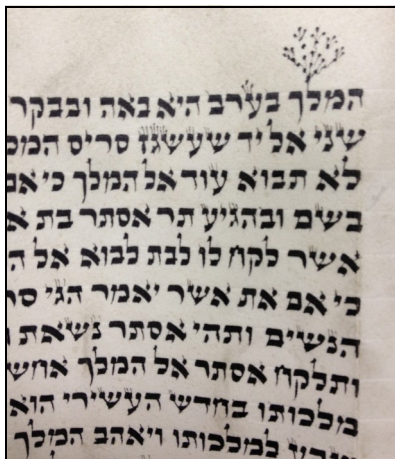 המלך בערב היא באה ובבקר
שני אל יד שעשגז סריס המ
לא תבוא עוד אל המלך כי אם
בשם ובהגיע תר אסתר בת א
אשר לקח לו לבת לבוא אל ה
כי אם את אשר יאמר הגי סר
הנשים ותהי אסתר נשאת
ותלקח אסתר אל המלך אחש
מלכותו בחדש העשירי הוא
שבע למלכותו ויאהב המלך